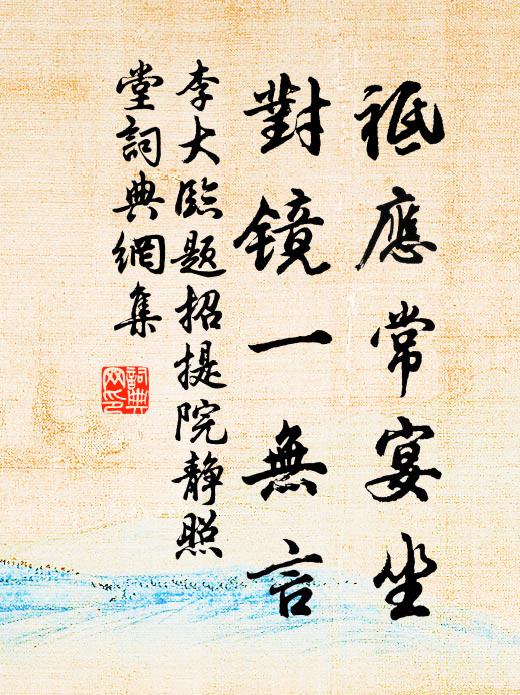 祗應常宴坐
對镜一無言
李大臨題招提院静照
堂詞典網集
詞典
网印